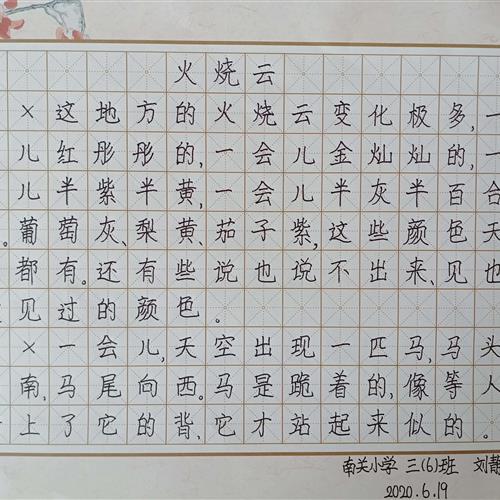 火烧云
×这地方的火烧云变化极多,一
儿红彤彤的,一会儿金灿灿的,一
儿半紫半黄,一会儿半灰半百合
。葡萄灰、梨黄、茄子紫,这些颜色天
都有。还有些说也说不出来、见也
见过的颜色。
×一会儿,天空出现一匹马,马头
南,马尾向西。马是跪着的,像等人
上了它的背,它才站起来似的。
南关小学 三(6)班 刘静
2020.6.19